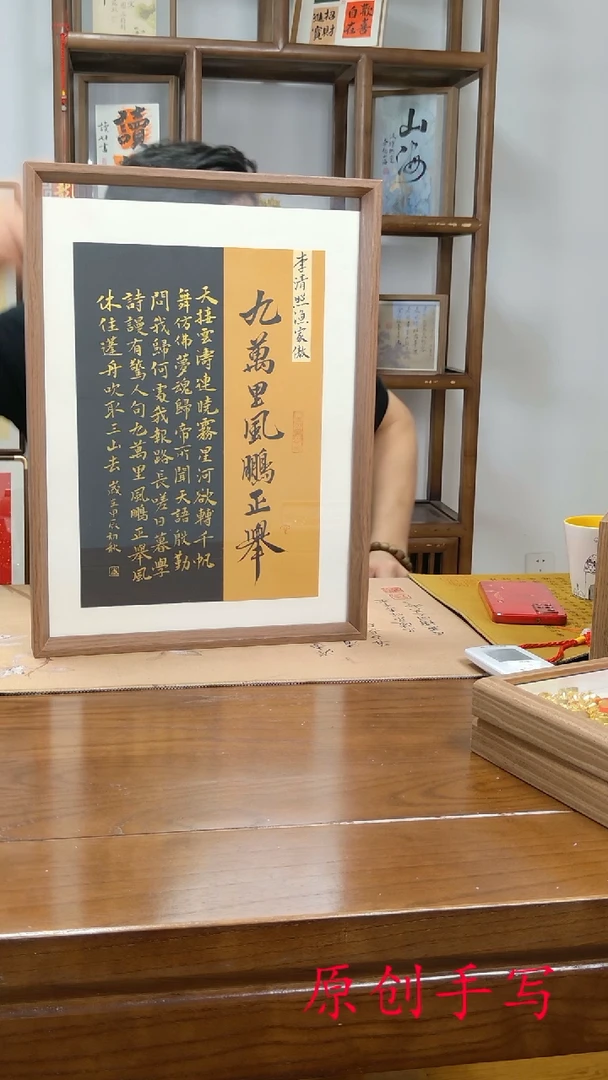 歡喜
自在
招財
進寶
讀
山海
李清照漁家傲
九萬里風鵬正舉
天接雲濤連曉霧星河欲轉千帆
舞仿佛夢魂歸帝所聞天語殷勤
問我歸何處我報路長嗟日暮學
詩謾有驚人句九萬里風鵬正舉風
休住蓬舟吹取三山去 歲在甲辰初秋
原创手写